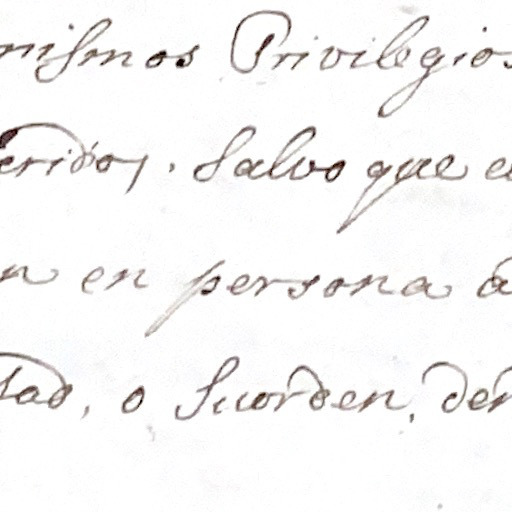 mismos Privilegios
feridos. Salvo que e
n en persona à
tad, o Suorden, den